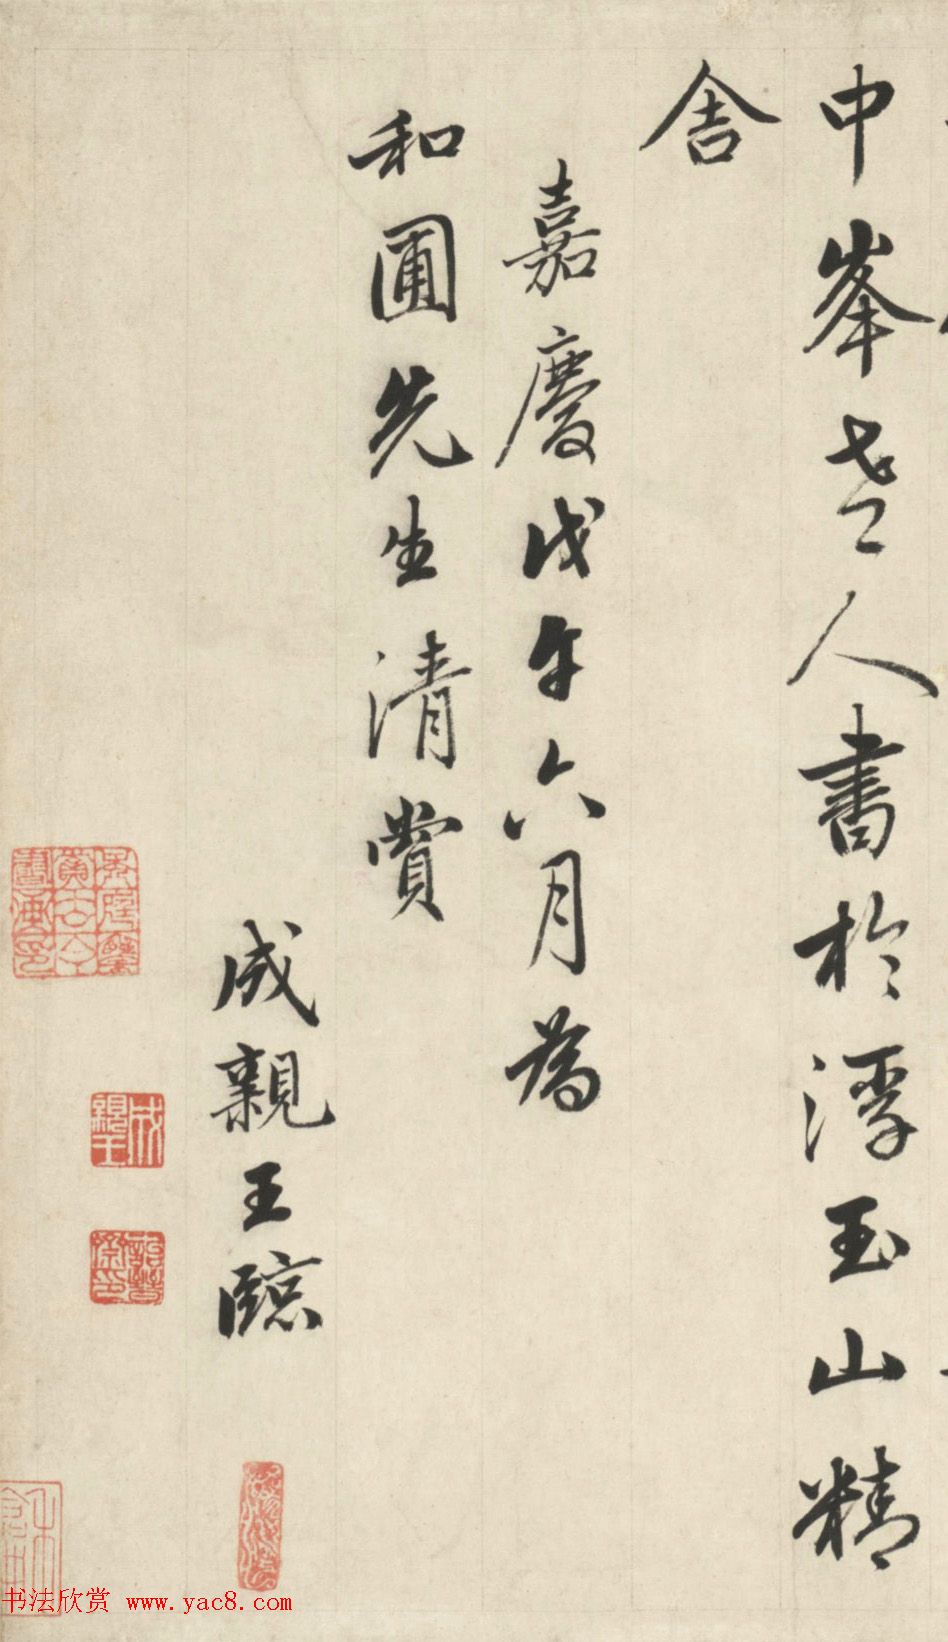 中峯老人書於浮玉山精
舍
嘉慶戊午六月為
和圃先生清賞
成親王臨
成親王
詒晉齋印
书法欣赏 www.yac8.com